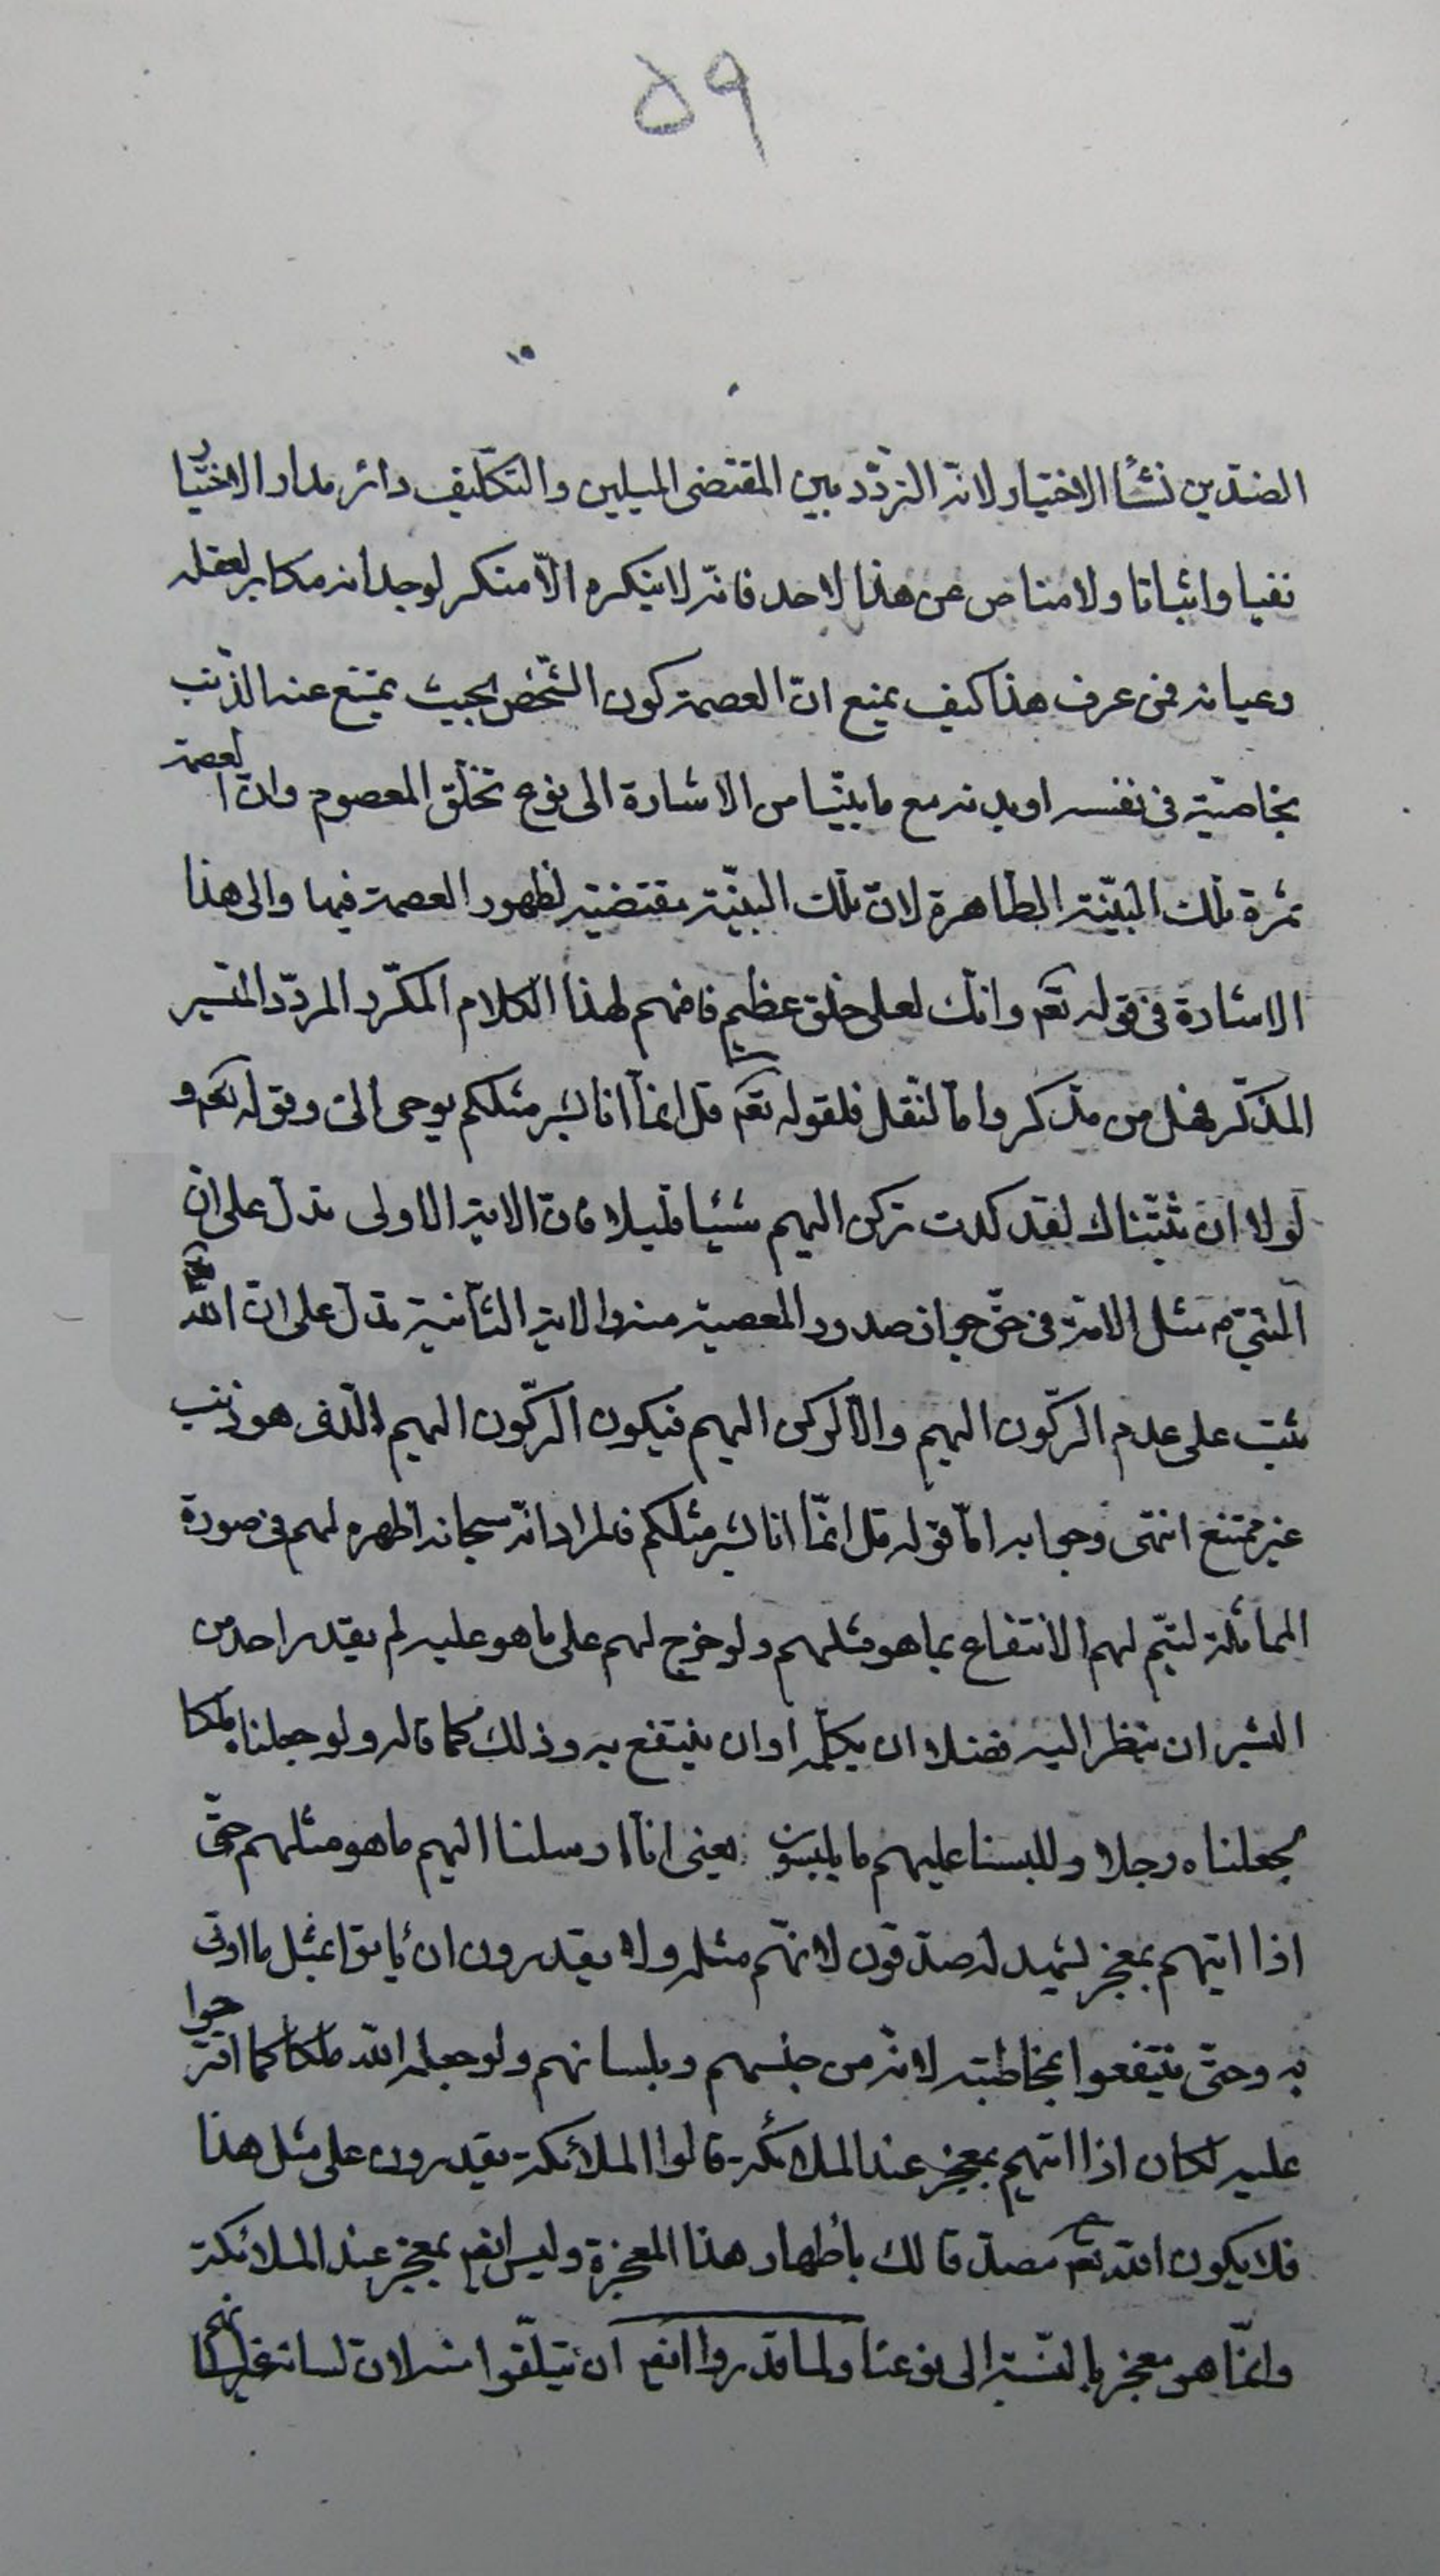 ٥٩
الضدّين نشأ الاختيار لانّه التردّد بين المقتضى الميلين والتكليف دائر مدار الاختيار
نفيا واثباتا ولا مناص عن هذا لاحد فانّه لا ينكره الّا منكر لوجدانه مكابر لعقله
وعيانه فمن عرف هذا كيف يمنع انّ العصمة كون الشّخص بحيث يمتنع عنه الذّنب
بخاصيّة في نفسه او بدنه مع ما بيّنّا من الاشارة الى نوع تخلّق المعصوم وانّ العصمة
ثمرة تلك البنيّة الطّاهرة لانّ تلك البنيّة مقتضية لظهور العصمة فيها والى هذا
الاشارة في قوله تعم وانّك لعلى خلق عظيم فافهم لهذا الكلام المكرّر المردّد
المذكّر فهل من مذكر وامّا لنقل فلقوله تعم قل انمّا انا بشر مثلكم يوحى الىّ وقوله تعم و
لولا ان ثبّتناك لقد كدت تركن اليهم شيئا قليلا فانّ الاية الاولى تدلّ على انّ
النبيّ م مثل الامّة في حقّ جواز صدور المعصية منه والاية الثّانية تدلّ على انّ الله
ثبت على عدم الركّون اليهم والّا لركن اليهم فيكون الركّون اليهم الّذى هو ذنب
غير ممتنع انتهى وجوابه امّا قوله قل انمّا انا بشر مثلكم فالمراد انّه سبحانه اظهره لهم في صورة
المماثلة ليتمّ لهم الانتفاع بما هو مثلهم ولو خرج لهم على ما هو عليه لم يقدر احد من
البشر ان ينظر اليه فضلا ان يكلّمه او ان ينتفع به وذلك كما قال ولو جعلناه ملكا
لجعلناه رجلا وللبسنا عليهم ما يلبسون يعنى انّا ارسلنا اليهم ما هو مثلهم حتّى
اذا اتيهم بمعجز لشهيد له صدّقون لانهّم مثله ولا يقدرون ان يأتوا بمثل ما اوتى
به وحتّى ينتفعوا بمخاطبته لانّه من جنسهم وبلسانهم ولو جعله الله ملكا كما اقترحوا
عليه لكان اذا اتيهم بمعجز عند الملائكة قالوا الملائكة يقدرون على مثل هذا
فلا يكون الله تعم مصدّقا لك باظهار هذا المعجزة وليس انهم بمعجز عند الملائكة
وانمّا هو معجز بالنّسبة الى نوعنا ولما قدروا انهم ان يتلّقوا منه لانّ لسانه غير لسانهم